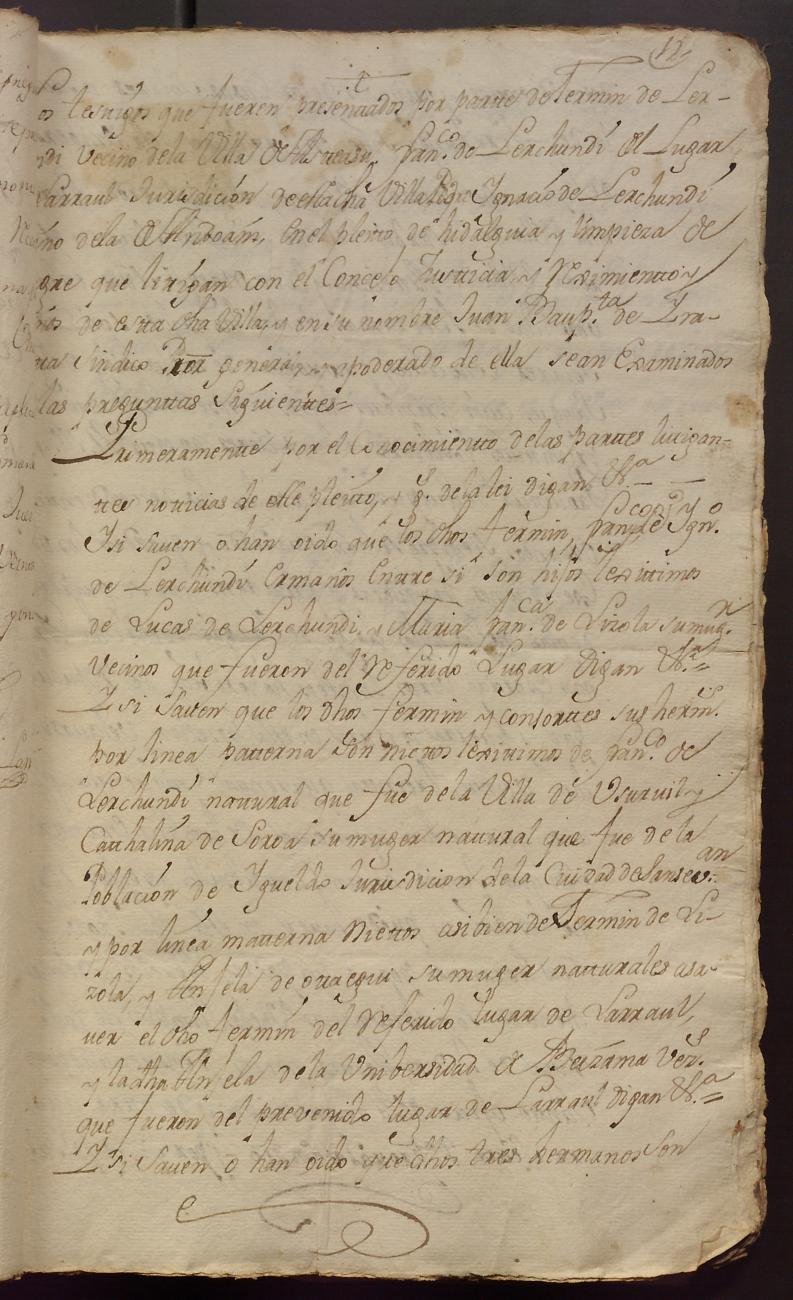 12
os testigos que fueren presenttados por partte de Fermin de Ler-
ndi vecino dela Villa de Asteasu, Fran.co de Lerchundi del Lugar
Larraul Jurisdición de dicha Villa Ygnacio de Lerchundi
ino dela de Anoam, en el pleito de hidalguia y limpieza de
gre que litigan con el Concejo Justicia, y Reximientto y
nos de esta dha Villa, y en su nombre Juan Baup.ta de Yra-
ta sindico Pror general y apoderado de ella séan Examinados
las preguntas siguienttes=
Primeramentte por el Conocimientto delas parttes litigan-
ttes notticias de este pleitto, y g. dela lei digan &.a
Y si saven o han oido que los dhos fermin, fran.co e Ygn.o
de Lerchundi Ermanos Enttre si son hijos lexitimos
de Lucas de Lerchundi, y Maria fran.ca de Lizola su mug.r
vecinos que fueron del Referido Lugar digan &.a=
Y si saven que los dhos fermin y consorttes sus herm.s
por linea patterna són niettos lexitimos de fran.co de
Lerchundi nattural que fue dela Villa de Usurvil y
Catthalina de Soroa su muger nattural que fue de la
Población de Igueldo Jurisdicion dela Ciudad de Sansev.an
y por linéa matterna Niettos asi bien de Fermin de Li-
zola, y Anjela de ottaegui su muger natturales asa-
ver el dho fermin del Referido lugar de Larraul,
y la dha Anjela dela Universidad de Bearzama vez.s
que fueron del prevenido lugar de Larraul digan &.a=
Y si saven o han oido que dhos tres hermanos son